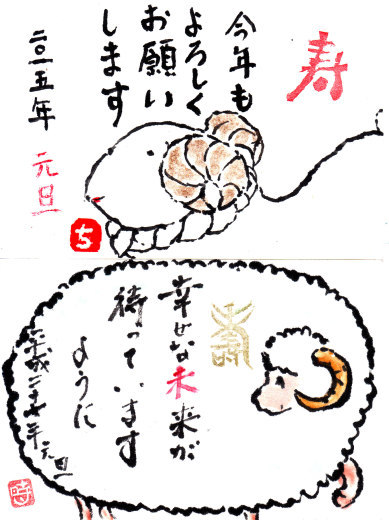 寿
今年も
よろしく
お願い
します
二〇一五年 元旦
ち
寿
幸せな未来が
待っています
ように
平成二十七年元旦